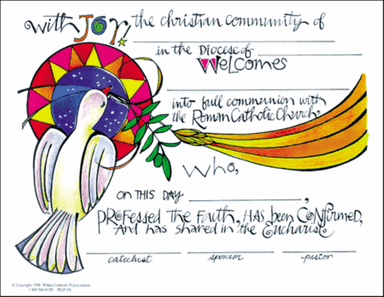 with JOY, the christian community of
in the Diocese of
Welcomes
into full communion with
the Roman Catholic Church,
who,
on this day
professed the faith, has been confirmed,
And has shared in the Eucharist.
catechist sponsor pastor
© Copyright 1998, World Library Publications